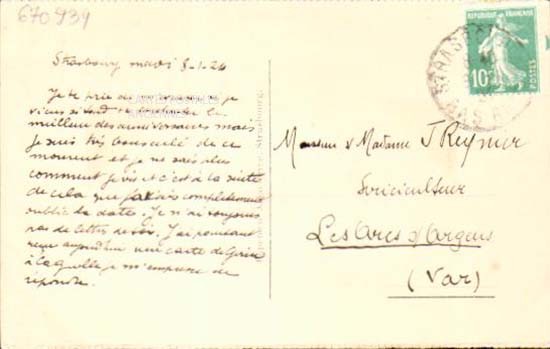 670939
Strasbourg mardi 8-1-24
Je te prie de je
viens si tard te souhaiter le
meilleur des anniversaires mais
je suis très bousculé de ce
moment et je ne sais plus
comment je vis et c'est à la suite
de cela que j'avais complètement
oublié la date. Je n'ai toujours
pas de lettre de toi. J'ai pourtant
reçu aujourd'hui une carte de
à laquelle je m'empresse de
répondre.
REPUBLIQUE FRANÇAISE
10c
POSTES
STRASBOURG
BAS-R
Monsieur & Madame J Reynier
Sériciculteur
Les Arcs d'Argens
(Var)
Strasbourg